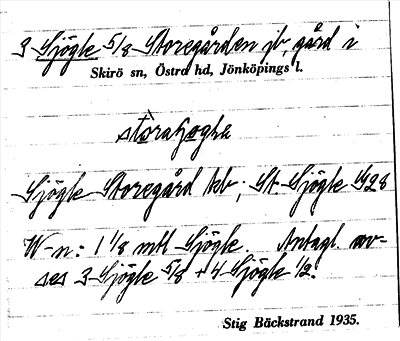 3 Sjögle 5/8 Storegården jb, gård i
Skirö sn, Östra hd, Jönköpings l.
Sjögle Storegård kb; St. Sjögle G28
W-n: 1 1/8 mtl Sjögle. Antagl. av-
ses 3 Sjögle 5/8 + 4 Sjögle 1/2.
Stig Bäckstrand 1935.